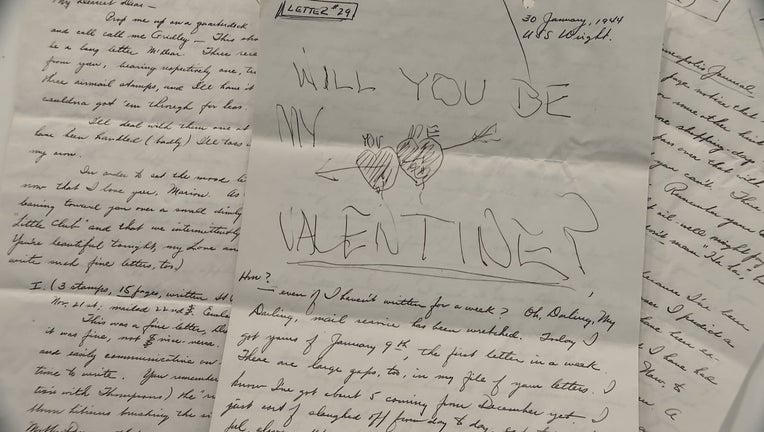 My dearest dear —
Prop me up on a quarterdeck
and call me Gridley —
be a long letter M'dear. Three
from you, bearing respectively one,
three airmail stamps, and I'll
couldna got 'em through for less.
I'll deal with them one at
have been handled (badly) I'll
my own.
In order to set the mood
now that I love you, Marion. As
leaning toward you over a small
"Little Club" and that we intermittently
You're beautiful tonight, my love
write such fine letters, too)
I. (3 stamps, 15 pages, written
Nov. 21st; mailed 22nd
This was a fine letter,
it was fine, not vice versa.
and easily communicative
time to write. Your
tion with Thompsons) the
brushing the
LETTER #29
30 January, 1944
USS Wright.
WILL YOU BE
MY
YOU ME
VALENTINE?
Hm?
— even if I haven't written for a week? Oh, Darling, My
Darling, mail service has been wretched. Today I
got yours of January 9th, the first letter in a week.
There are large gaps, too, in my file of your letters. I
know I've got about 5 coming from December yet. I
just sort of sloughed off from day to day,
Journal
page notice that
some other
shopping days
pass over that
you can't.
Remember your
well might
man "He has,"
because I've been
I predict a
have been
I have had
Now, to
A